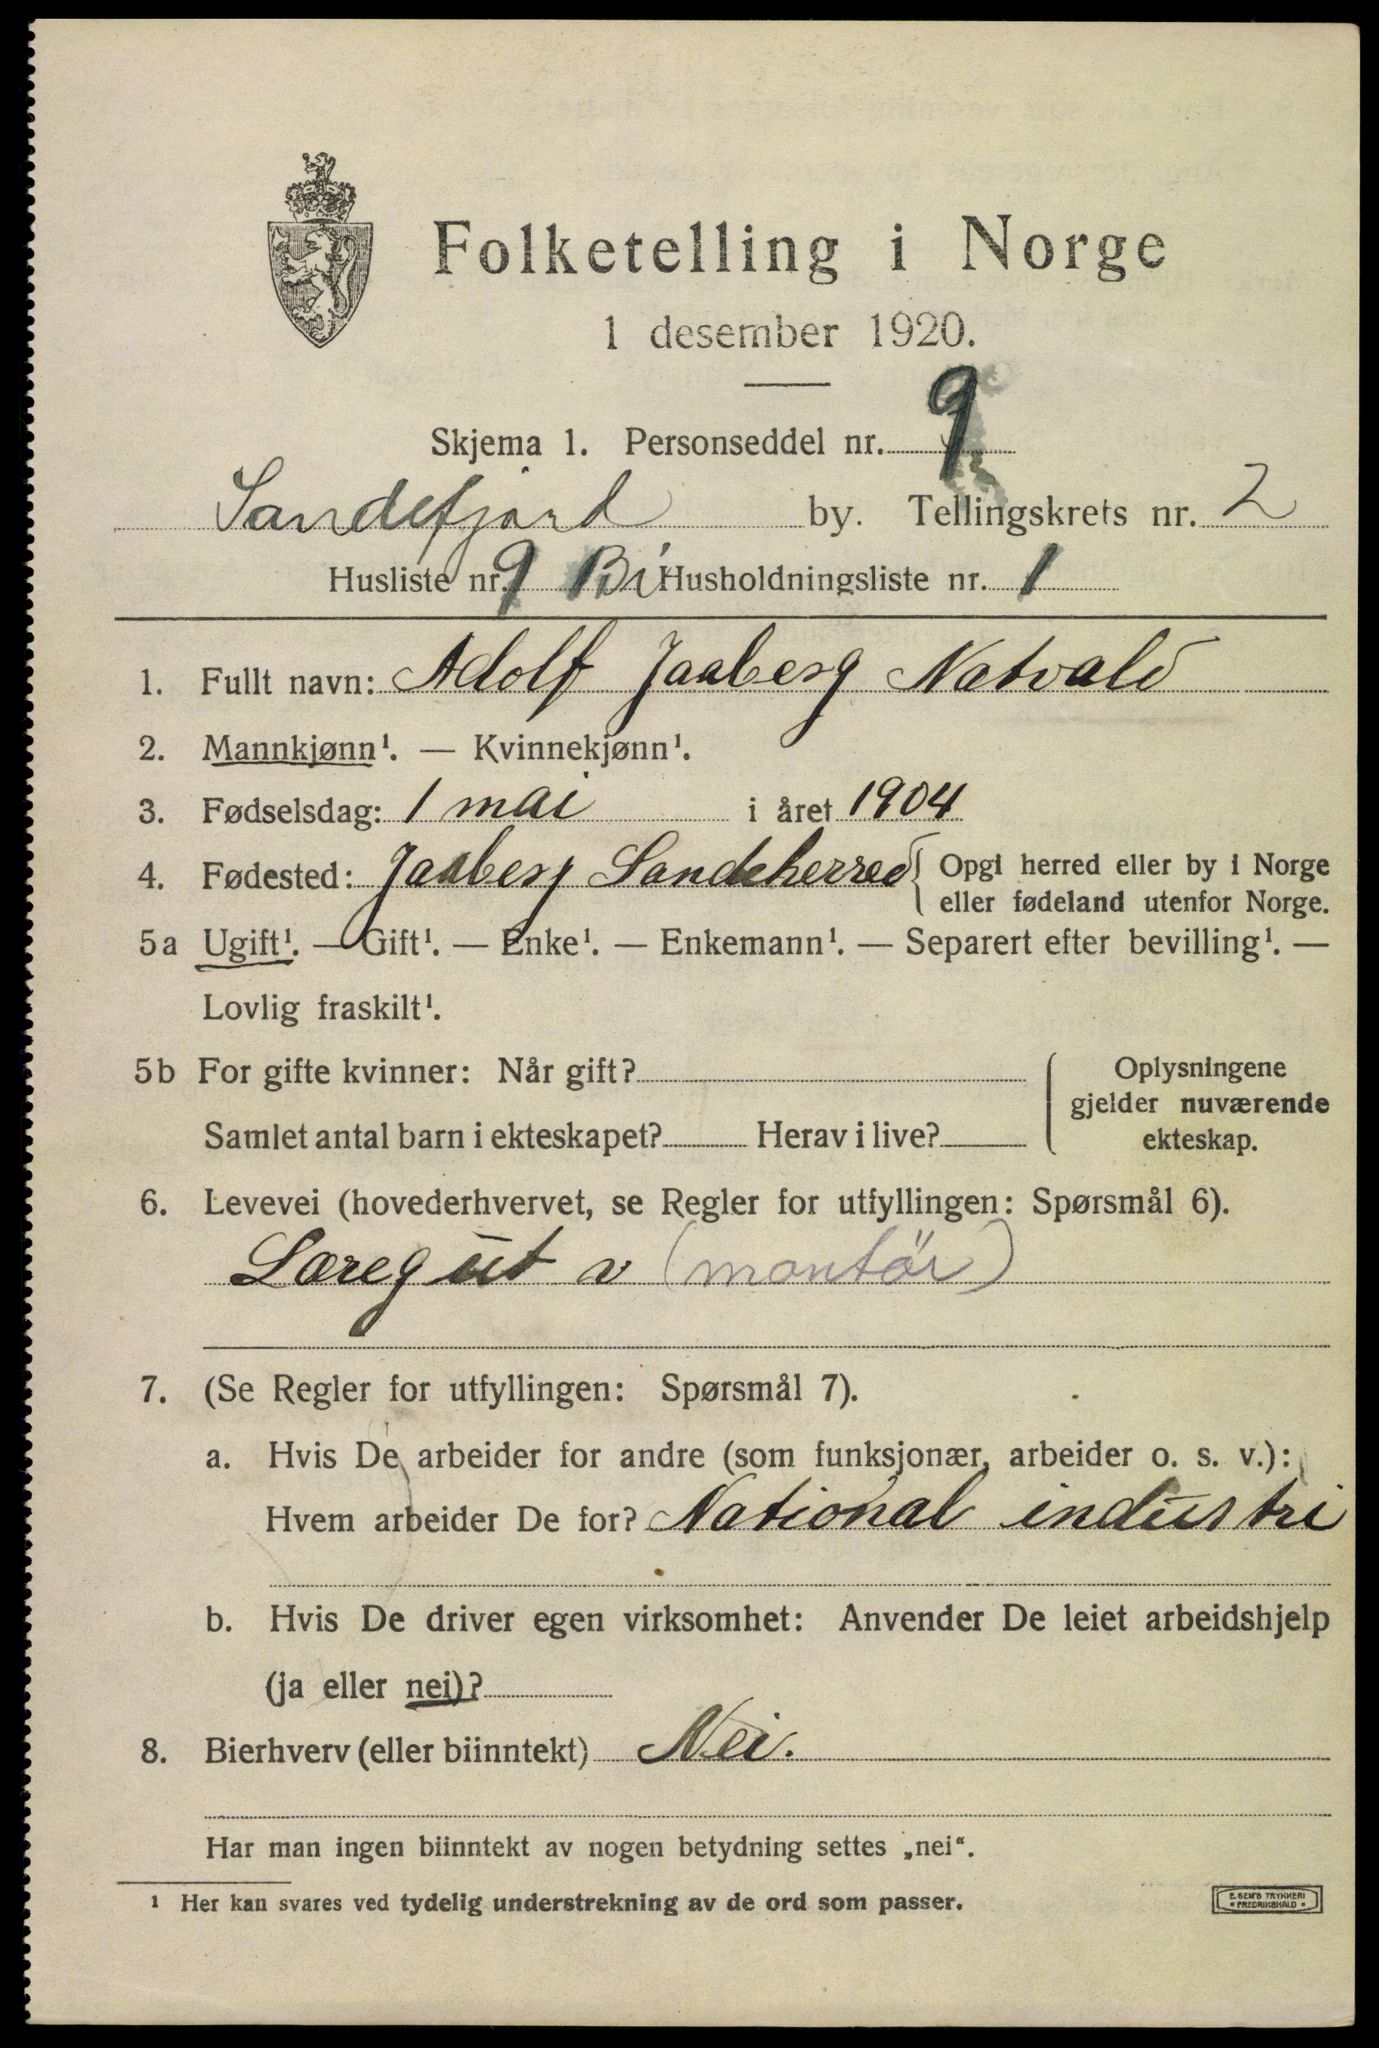 Folketelling i Norge
1 desember 1920.
Skjema 1. Personseddel nr. 9
Sandefjord by. Tellingskrets nr. 2
Husliste nr. 9 Bi Husholdningsliste nr. 1
1. Fullt navn: Adolf Jaaberg Natvald
2. Mannkjønn¹. — Kvinnekjønn¹.
3. Fødselsdag: 1 mai i året 1904
4. Fødested: Jaaberg Sandeherred { Opgi herred eller by i Norge
eller fødeland utenfor Norge.
5a Ugift¹. — Gift¹. — Enke¹. — Enkemann¹. — Separert efter bevilling¹. —
Lovlig fraskilt¹.
5b For gifte kvinner: Når gift?
Samlet antal barn i ekteskapet? Herav i live?
Oplysningene
gjelder nuværende
ekteskap.
6. Levevei (hovederhvervet, se Regler for utfyllingen: Spørsmål 6).
Læregut v (montör)
7. (Se Regler for utfyllingen: Spørsmål 7).
a. Hvis De arbeider for andre (som funksjonær, arbeider o. s. v.):
Hvem arbeider De for? National industri
b. Hvis De driver egen virksomhet: Anvender De leiet arbeidshjelp
(ja eller nei)?
8. Bierhverv (eller biinntekt) Nei.
Har man ingen biinntekt av nogen betydning settes „nei“.
¹ Her kan svares ved tydelig understrekning av de ord som passer.
E. SEM'S TRYKKERI
• FREDRIKSHALD •